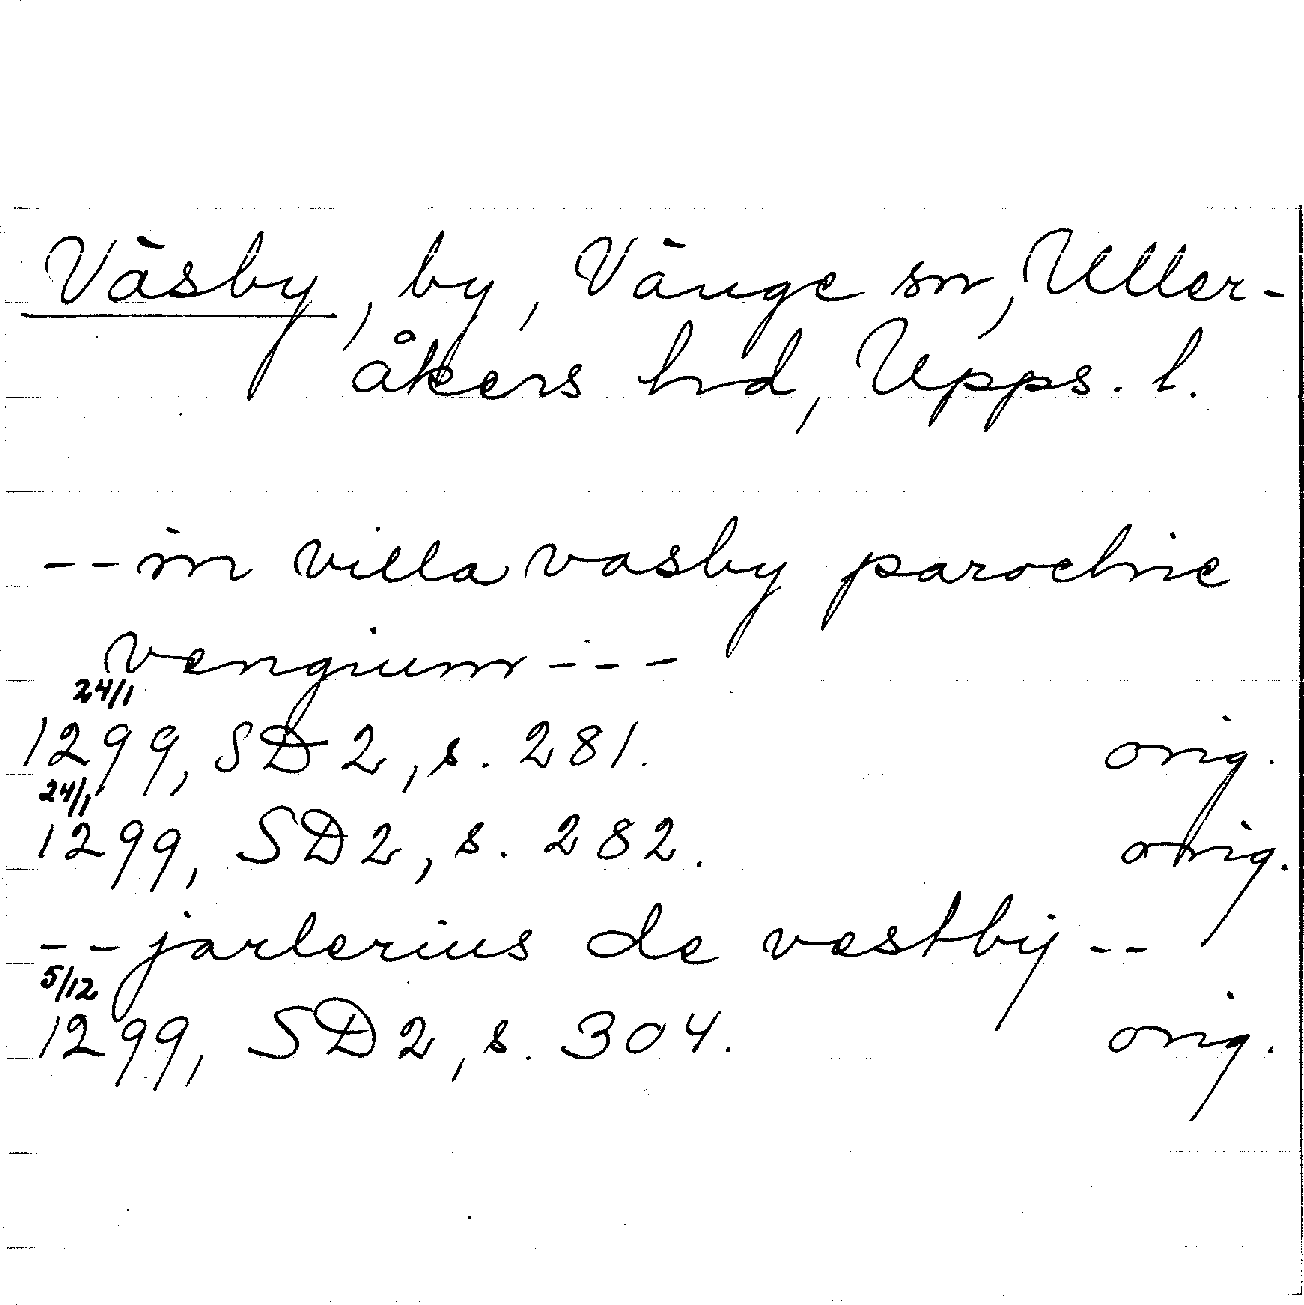 Väsby, by, Vänge sn, Uller-
åkers hd, Upps. l.
--in villa vasby parochie
vengium---
24/1
1299, SD 2, s. 281. orig.
24/1
1299, SD 2, s. 282. orig.
--jarlerius de vestby--
5/12
1299, SD 2, s. 304. orig.